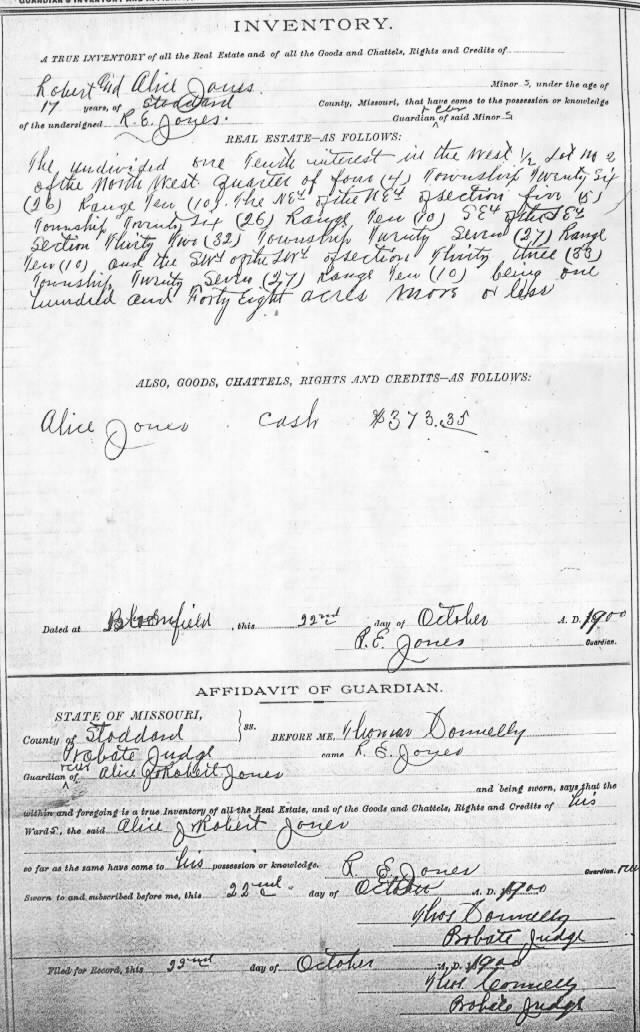 INVENTORY.
A TRUE INVENTORY of all the Real Estate and of all the Goods and Chattels, Rights and Credits of
Robert and Alice Jones. Minor s, under the age of
17 years, of Stoddard County, Missouri, that have come to the possession or knowledge
of the undersigned R. E. Jones. Guardian of said Minor s
REAL ESTATE—AS FOLLOWS:
The undivided one Tenth interest in the West 1/2 Lot No 2
of the North West quarter of four (4) Township Twenty Six
(26) Range Ten (10). The NE4 of the NE4 of section five (5)
Township Twenty Six (26) Range Ten (10) SE4 of the SE4
Section Thirty Two (32) Township Twenty Seven (27) Range
Ten (10) and the SW4 of the SW4 of section Thirty three (33)
Township Twenty Seven (27) Range Ten (10) being one
hundred and Forty Eight acres more or less
ALSO, GOODS, CHATTELS, RIGHTS AND CREDITS—AS FOLLOWS:
Alice Jones Cash $373.35
Dated at Bloomfield, this 22nd day of October A. D. 1900
R. E. Jones Guardian.
AFFIDAVIT OF GUARDIAN.
STATE OF MISSOURI,
County of Stoddard } ss. BEFORE ME, Thomas Connelly
Probate Judge came R. E. Jones
Guardian of Alice & Robert Jones
and being sworn, says that the
within and foregoing is a true Inventory of all the Real Estate, and of the Goods and Chattels, Rights and Credits of his
Ward s, the said Alice & Robert Jones
so far as the same have come to his possession or knowledge. R. E. Jones Guardian.
Sworn to and subscribed before me, this 22nd day of October A. D. 1900
Thos Connelly
Probate Judge
Filed for Record, this 22nd day of October A. D. 1900
Thos. Connelly
Probate Judge